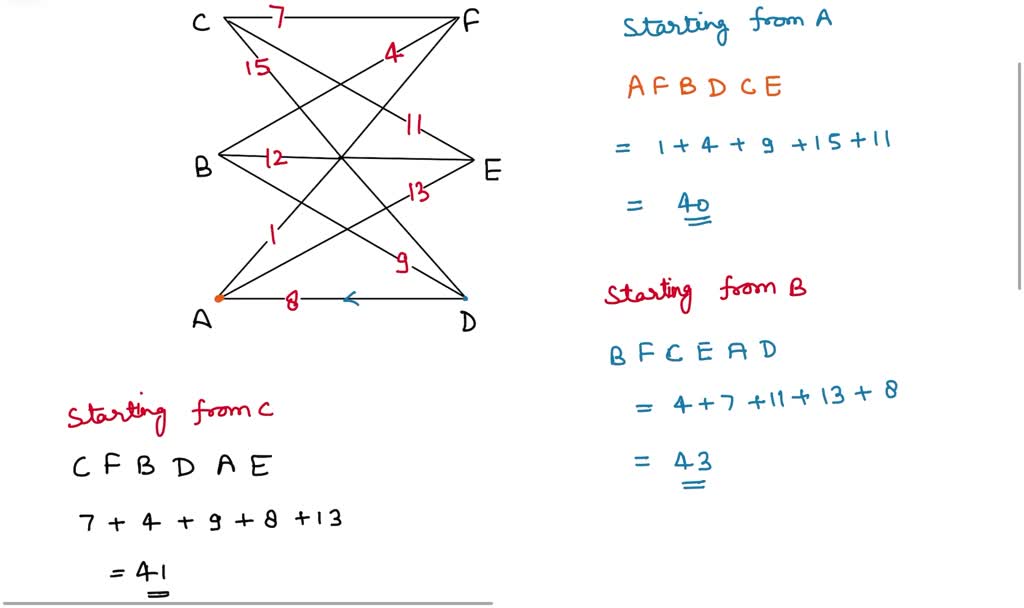 C 7 F
15
4
11
B 12 E
13
1
9
8
A D
Starting from A
A F B D C E
= 1 + 4 + 9 + 15 + 11
= 40
Starting from B
B F C E A D
= 4 + 7 + 11 + 13 + 8
= 43
Starting from C
C F B D A E
7 + 4 + 9 + 8 + 13
= 41